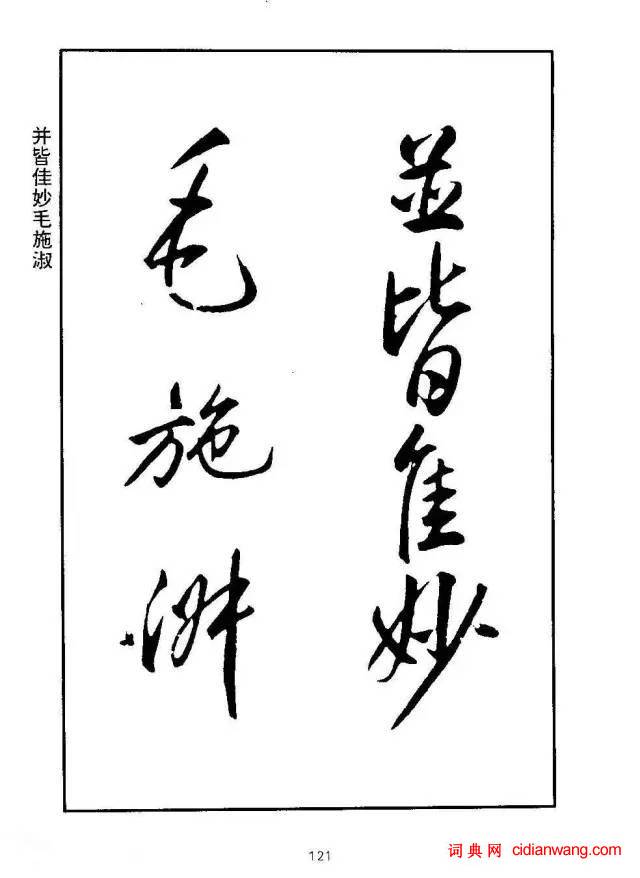 並皆佳妙
毛施淑
并皆佳妙毛施淑
121
词典网 cidianwang.com